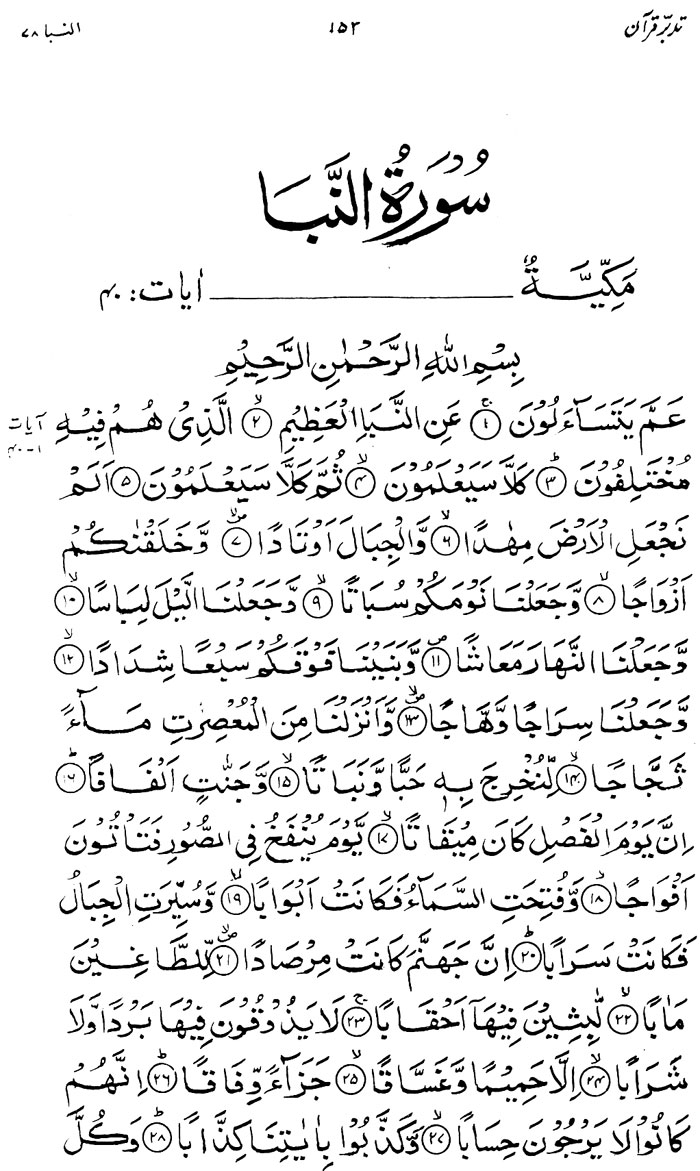 تدبّرِ قرآن ۱۵۳ النبا ۷۸
سُوۡرَةُ النَّبَا
مَكِّيَّةٌ ـــــــــــــ اٰيات: ۴۰
بِسۡمِ اللّٰهِ الرَّحۡمٰنِ الرَّحِيۡمِ
عَمَّ يَتَسَآءَلُوۡنَ ۚ﴿۱﴾ عَنِ النَّبَاِ الۡعَظِيۡمِ ۙ﴿۲﴾ الَّذِىۡ هُمۡ فِيۡهِ آیات
مُخۡتَلِفُوۡنَ ؕ﴿۳﴾ كَلَّا سَيَعۡلَمُوۡنَ ۙ﴿۴﴾ ثُمَّ كَلَّا سَيَعۡلَمُوۡنَ ﴿۵﴾ اَلَمۡ ۱-۴۰
نَجۡعَلِ الۡاَرۡضَ مِهٰدًا ۙ﴿۶﴾ وَّالۡجِبَالَ اَوۡتَادًا ۪ۙ﴿۷﴾ وَّخَلَقۡنٰكُمۡ
اَزۡوَاجًا ۙ﴿۸﴾ وَّجَعَلۡنَا نَوۡمَكُمۡ سُبَاتًا ۙ﴿۹﴾ وَّجَعَلۡنَا الَّيۡلَ لِبَاسًا ۙ﴿۱۰﴾
وَّجَعَلۡنَا النَّهَارَ مَعَاشًا ۪﴿۱۱﴾ وَّبَنَيۡنَا فَوۡقَكُمۡ سَبۡعًا شِدَادًا ۙ﴿۱۲﴾
وَّجَعَلۡنَا سِرَاجًا وَّهَّاجًا ۪ۙ﴿۱۳﴾ وَّاَنۡزَلۡنَا مِنَ الۡمُعۡصِرٰتِ مَآءً
ثَجَّاجًا ۙ﴿۱۴﴾ لِّنُخۡرِجَ بِهٖ حَبًّا وَّنَبَاتًا ۙ﴿۱۵﴾ وَّجَنّٰتٍ اَلۡفَافًا ؕ﴿۱۶﴾
اِنَّ يَوۡمَ الۡفَصۡلِ كَانَ مِيۡقَاتًا ۙ﴿۱۷﴾ يَّوۡمَ يُنۡفَخُ فِى الصُّوۡرِ فَتَاۡتُوۡنَ
اَفۡوَاجًا ۙ﴿۱۸﴾ وَّفُتِحَتِ السَّمَآءُ فَكَانَتۡ اَبۡوَابًا ۙ﴿۱۹﴾ وَّسُيِّرَتِ الۡجِبَالُ
فَكَانَتۡ سَرَابًا ؕ﴿۲۰﴾ اِنَّ جَهَنَّمَ كَانَتۡ مِرۡصَادًا ۪ۙ﴿۲۱﴾ لِّلطَّاغِيۡنَ
مَاٰبًا ۙ﴿۲۲﴾ لّٰبِثِيۡنَ فِيۡهَاۤ اَحۡقَابًا ۚ﴿۲۳﴾ لَا يَذُوۡقُوۡنَ فِيۡهَا بَرۡدًا وَّلَا
شَرَابًا ۙ﴿۲۴﴾ اِلَّا حَمِيۡمًا وَّغَسَّاقًا ۙ﴿۲۵﴾ جَزَآءً وِّفَاقًا ؕ﴿۲۶﴾ اِنَّهُمۡ
كَانُوۡا لَا يَرۡجُوۡنَ حِسَابًا ۙ﴿۲۷﴾ وَّكَذَّبُوۡا بِاٰيٰتِنَا كِذَّابًا ؕ﴿۲۸﴾ وَكُلَّ